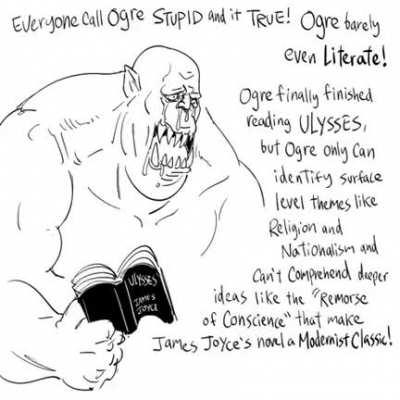 Everyone call Ogre STUPID and it TRUE! Ogre barely
even Literate!
Ogre finally finished
reading ULYSSES,
but Ogre only can
identify surface
level themes like
Religion and
Nationalism and
Can't Comprehend deeper
ideas like the "Remorse
of Conscience" that make
James Joyce's novel a Modernist Classic!
ULYSSES
JAMES
JOYCE